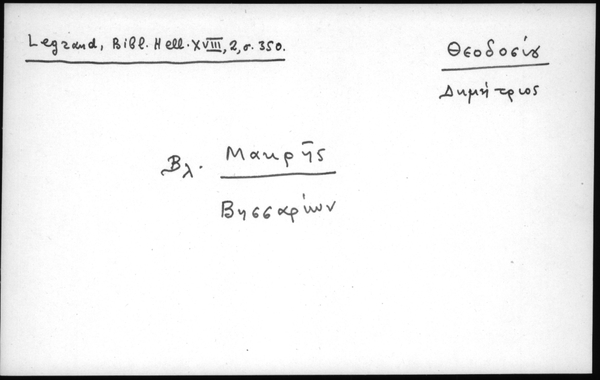 Legrand, Bibl. Hell. XVIII, 2, σ. 350.
Θεοδοσίου
Δημήτριος
Βλ. Μακρῆς
Βησσαρίων